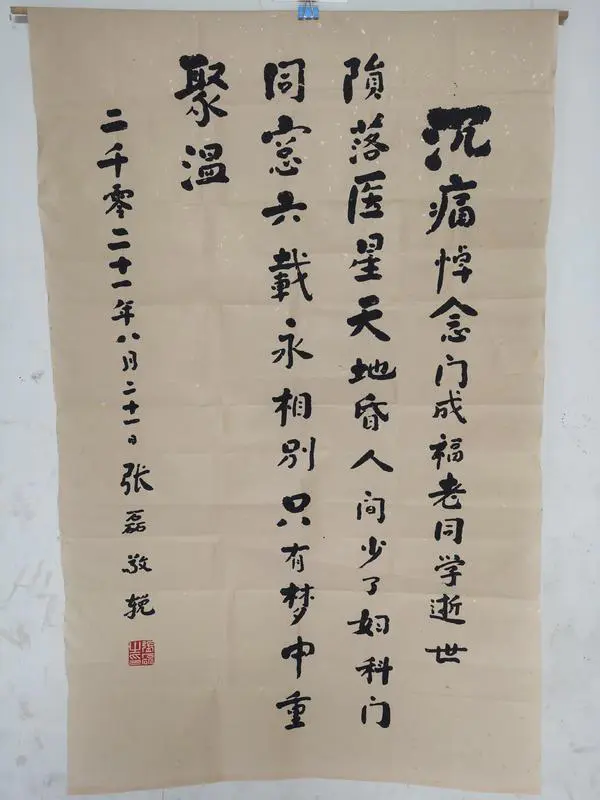 沉痛悼念门成福老同学逝世
陨落医星天地昏人间少了妇科门
同窓六載永相别只有梦中重
聚温
二千零二十一年八月二十一日 张磊敬輓
張磊之印